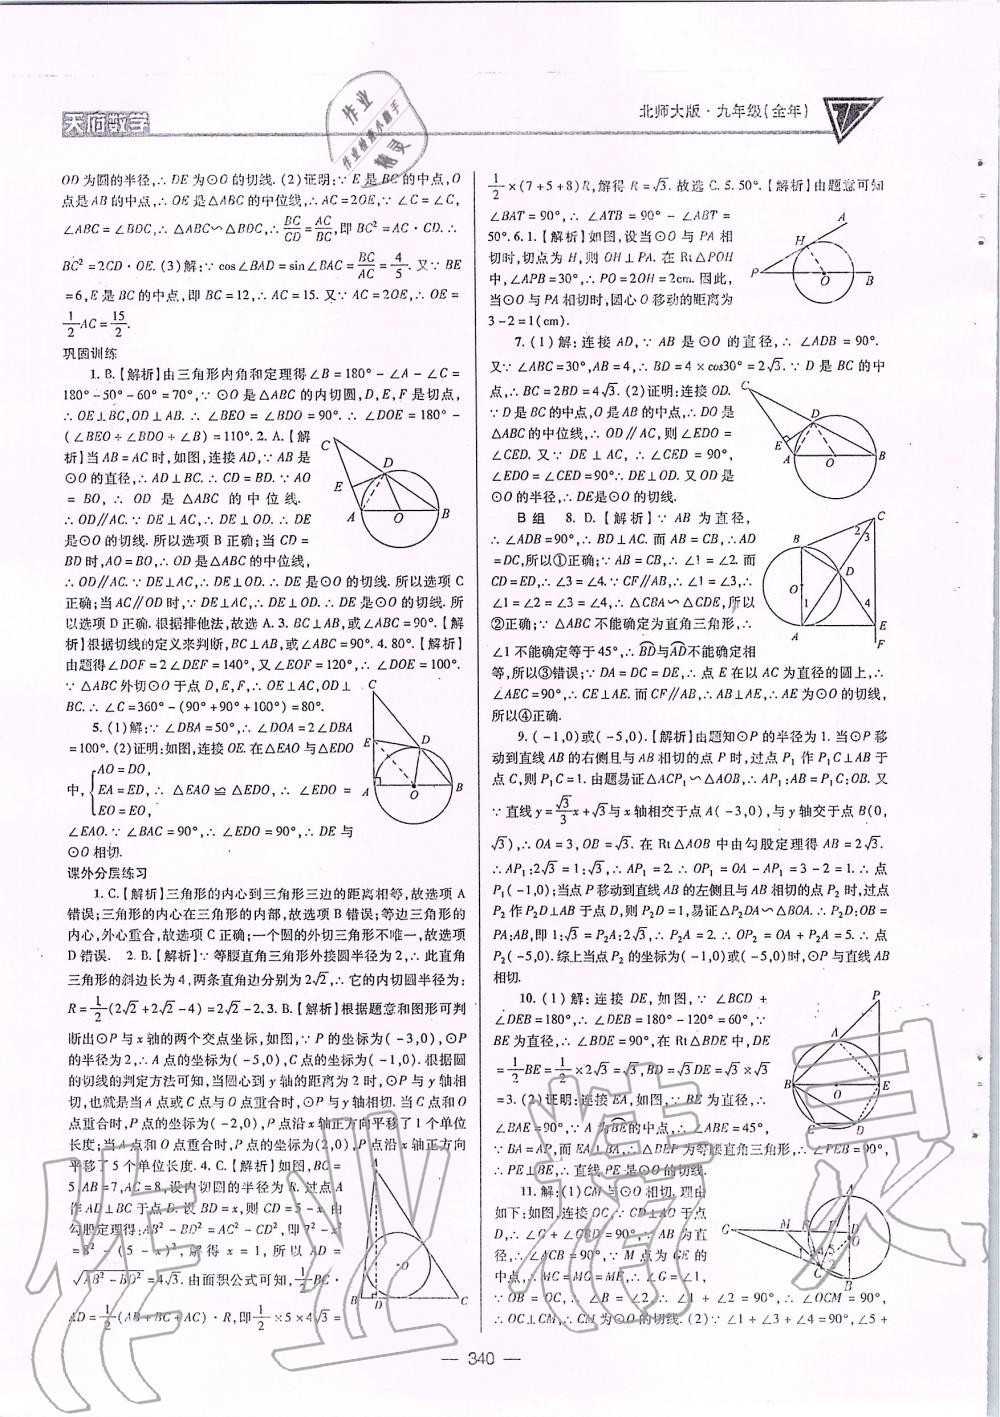 天府数学
北师大版·九年级(全年)
OD为圆的半径,∴DE为⊙O的切线.(2)证明:∵E是BC的中点,O
点是AB的中点,∴OE是△ABC的中位线,∴AC=2OE,∵∠C=∠C,
∠ABC=∠BDC,∴△ABC∽△BDC,∴BC/CD=AC/BC,即BC²=AC·CD.∴
BC²=2CD·OE.(3)解:∵cos∠BAD=sin∠BAC=BC/AC=4/5.又∵BE
=6,E是BC的中点,即BC=12,∴AC=15.又∵AC=2OE,∴OE=
1/2AC=15/2.
巩固训练
1.B.【解析】由三角形内角和定理得∠B=180°-∠A-∠C=
180°-50°-60°=70°,∵⊙O是△ABC的内切圆,D,E,F是切点,
∴OE⊥BC,OD⊥AB.∴∠BEO=∠BDO=90°.∴∠DOE=180°-
(∠BEO+∠BDO+∠B)=110°.2.A.【解
析】当AB=AC时,如图,连接AD,∵AB是
⊙O的直径,∴AD⊥BC.∴CD=BD.∵AO
=BO,∴OD是△ABC的中位线.
∴OD∥AC.∵DE⊥AC,∴DE⊥OD.∴DE
是⊙O的切线.所以选项B正确;当CD=
BD时,AO=BO,∴OD是△ABC的中位线,
∴OD∥AC.∵DE⊥AC,∴DE⊥OD.∴DE是⊙O的切线.所以选项C
正确;当AC∥OD时,∵DE⊥AC,∴DE⊥OD.∴DE是⊙O的切线.所
以选项D正确.根据排他法,故选A.3.BC⊥AB,或∠ABC=90°.【解
析】根据切线的定义来判断,BC⊥AB,或∠ABC=90°.4.80°.【解析】
由题得∠DOF=2∠DEF=140°,又∠EOF=120°,∴∠DOE=100°.
∵△ABC外切⊙O于点D,E,F,∴OE⊥AC,OD⊥
BC.∴∠C=360°-(90°+90°+100°)=80°.
5.(1)解:∵∠DBA=50°,∴∠DOA=2∠DBA
=100°.(2)证明:如图,连接OE.在△EAO与△EDO
中,{AO=DO,
EA=ED,∴△EAO≌△EDO,∴∠EDO=
EO=EO,
∠EAO.∵∠BAC=90°,∴∠EDO=90°,∴DE与
⊙O相切.
课外分层练习
1.C.【解析】三角形的内心到三角形三边的距离相等,故选项A
错误;三角形的内心在三角形的内部,故选项B错误;等边三角形的
内心,外心重合,故选项C正确;一个圆的外切三角形不唯一,故选项
D错误. 2.B.【解析】∵等腰直角三角形外接圆半径为2,∴此直角
三角形的斜边长为4,两条直角边分别为2√2,∴它的内切圆半径为:
R=1/2(2√2+2√2-4)=2√2-2.3.B.【解析】根据题意和图形可判
断出⊙P与x轴的两个交点坐标,如图,∵P的坐标为(-3,0),⊙P
的半径为2,∴A点的坐标为(-5,0),C点的坐标为(-1,0).根据圆
的切线的判定方法可知,当圆心到y轴的距离为2时,⊙P与y轴相
切,也就是当A点或C点与O点重合时,⊙P与y轴相切.当C点和O
点重合时,P点的坐标为(-2,0),P点沿x轴正方向平移了1个单位
长度;当A点和O点重合时,P点的坐标为(2,0),P点沿x轴正方向
平移了5个单位长度.4.C.【解析】如图,BC=
5,AB=7,AC=8,设内切圆的半径为R.过点A
作AD⊥BC于点D.设BD=x,则CD=5-x.由
勾股定理得:AB²-BD²=AC²-CD²,即7²-x²
=8²-(5-x)²,解得x=1,所以AD=
√AB²-BD²=4√3.由面积公式可知,1/2BC·
AD=1/2(AB+BC+AC)·R,即1/2×5×4√3=
1/2×(7+5+8)R,解得R=√3.故选C.5.50°.【解析】由题意可知
∠BAT=90°,∴∠ATB=90°-∠ABT=
50°.6.1.【解析】如图,设当⊙O与PA相
切时,切点为H,则OH⊥PA.在Rt△POH
中,∠APB=30°,∴PO=2OH=2cm.因此,
当⊙O与PA相切时,圆心O移动的距离为
3-2=1(cm).
7.(1)解:连接AD,∵AB是⊙O的直径,∴∠ADB=90°.
又∵∠ABC=30°,AB=4,∴BD=4×cos30°=2√3.∵D是BC的中
点,∴BC=2BD=4√3.(2)证明:连接OD.
∵D是BC的中点,O是AB的中点,∴DO是
△ABC的中位线,∴OD∥AC,则∠EDO=
∠CED.又∵DE⊥AC,∴∠CED=90°,
∠EDO=∠CED=90°∴DE⊥OD.又OD是
⊙O的半径,∴DE是⊙O的切线.
B组 8.D.【解析】∵AB为直径,
∴∠ADB=90°,∴BD⊥AC.而AB=CB,∴AD
=DC,所以①正确;∵AB=CB,∴∠1=∠2.而
CD=ED,∴∠3=∠4.∵CF∥AB,∴∠1=∠3,∴
∠1=∠2=∠3=∠4,∴△CBA∽△CDE,所以
②正确;∵△ABC不能确定为直角三角形,∴
∠1不能确定等于45°,∴BD与AD不能确定相
等,所以③错误;∵DA=DC=DE,∴点E在以AC为直径的圆上,∴
∠AEC=90°,∴CE⊥AE.而CF∥AB,∴AB⊥AE,∴AE为⊙O的切线,
所以④正确.
9.(-1,0)或(-5,0).【解析】由题知⊙P的半径为1.当⊙P移
动到直线AB的右侧且与AB相切的点P时,过点P₁作P₁C⊥AB于
点C,则P₁C=1.由题易证△ACP₁∽△AOB,∴AP₁:AB=P₁C:OB.又
∵直线y=√3/3x+√3与x轴相交于点A(-3,0),与y轴交于点B(0,
√3),∴OA=3,OB=√3.在Rt△AOB中由勾股定理得AB=2√3.
∴AP₁:2√3=1:√3,∴AP₁=2.∴OP₁=OA-AP₁=3-2=1.∴点
P₁(-1,0);当点P移动到直线AB的左侧且与AB相切的点P₂时,过点
P₂作P₂D⊥AB于点D,则P₂D=1,易证△P₂DA∽△BOA.∴P₂D:OB=
PA:AB,即1:√3=P₂A:2√3,∴P₂A=2.∴OP₂=OA+P₂A=5.∴点
P₂(-5,0).综上当点P₂的坐标为(-1,0)或(-5,0)时,⊙P与直线AB
相切.
10.(1)解:连接DE,如图,∵∠BCD+
∠DEB=180°,∴∠DEB=180°-120°=60°,∵
BE为直径,∴∠BDE=90°,在Rt△BDE中,DE
=1/2BE=1/2×2√3=√3,BD=√3DE=√3×√3
=3.(2)证明:连接EA,如图,∵BE为直径,∴
∠BAE=90°,∵A为BE的中点,∴∠ABE=45°,
∵BA=AP,而EA⊥BA,∴△BEP为等腰直角三角形,∴∠PEB=90°,
∴PE⊥BE,∴直线PE是⊙O的切线.
11.解:(1)CM与⊙O相切.理由
如下:如图,连接OC,∵CD⊥AO于点
D,∴∠G+∠GBD=90°,∵AB为直
径,∴∠ACB=90°,∵M点为GE的
中点,∴MC=MG=ME,∴∠G=∠1,
∵OB=OC,∴∠B=∠2,∴∠1+∠2=90°,∴∠OCM=90°,
∴OC⊥CM,∴CM为⊙O的切线.(2)∵∠1+∠3+∠4=90°,∠5+
— 340 —